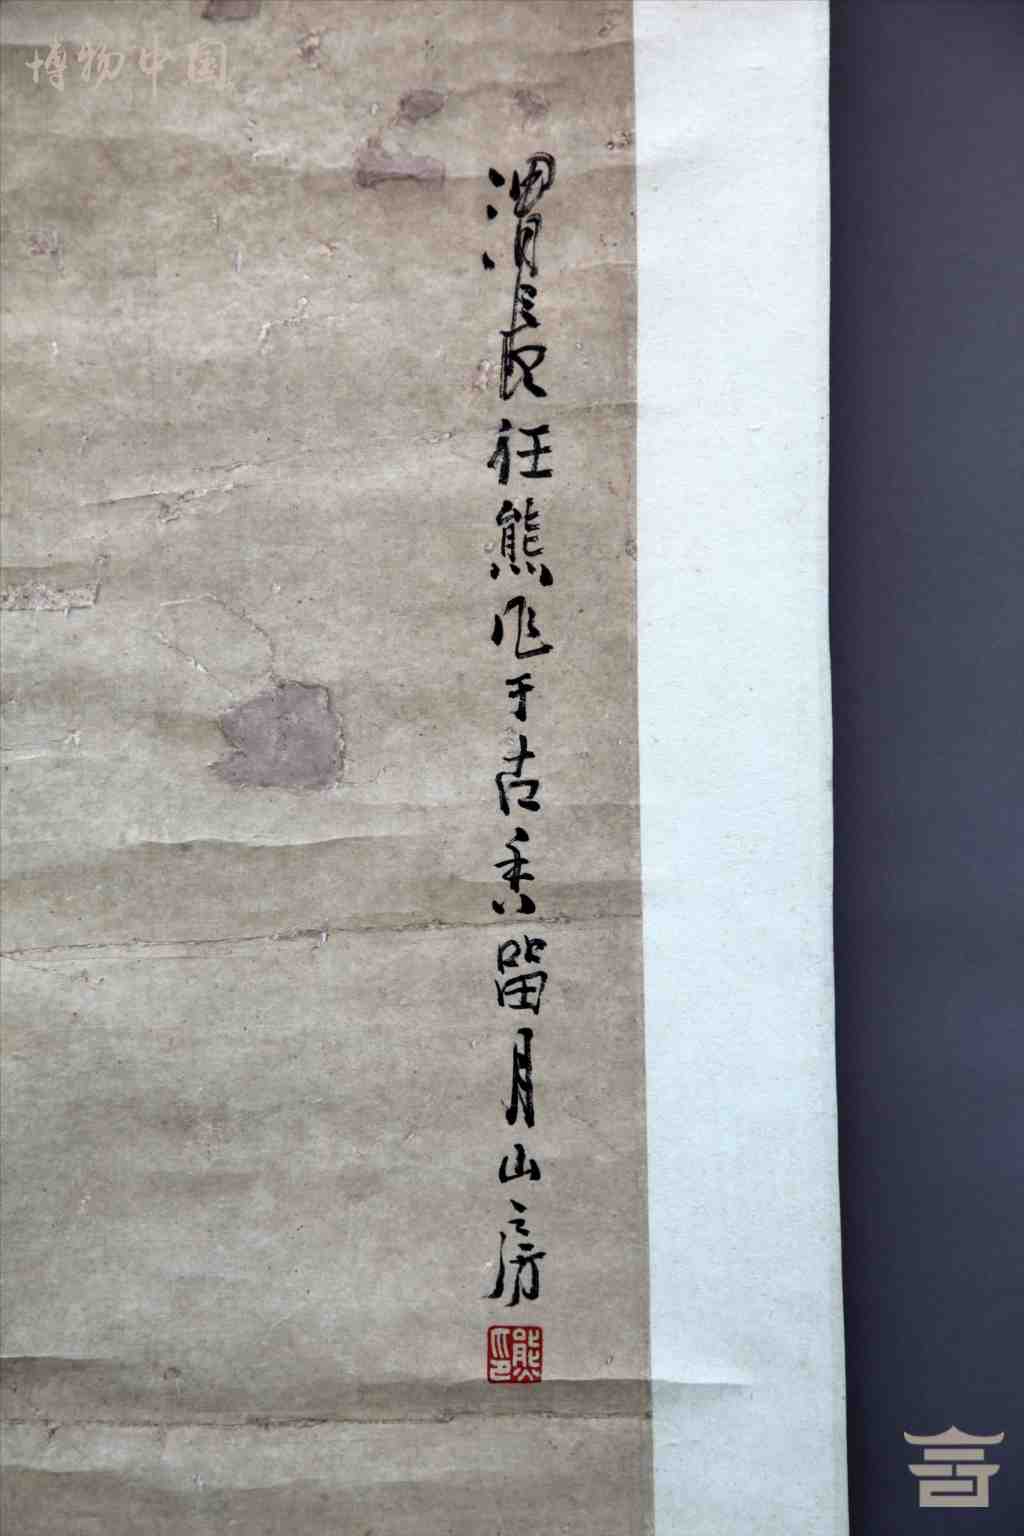 博物中国
渭長任熊作于古香留月山房
熊印